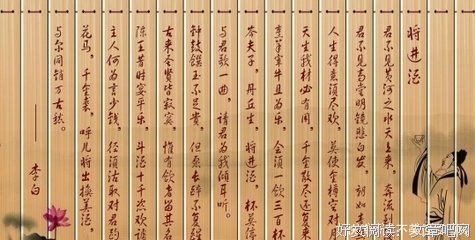 将进酒
君不见黄河之水天上来，奔流到
君不见高堂明镜悲白发，朝如青
人生得意须尽欢，莫使金樽空对月
天生我材必有用，千金散尽还复来
烹羊宰牛且为乐，会须一饮三百
岑夫子，丹丘生，将进酒，杯莫停
与君歌一曲，请君为我倾耳听。
钟鼓馔玉不足贵，但愿长醉不复醒
古来圣贤皆寂寞，惟有饮者留其名
陈王昔时宴平乐，斗酒十千恣欢谑
主人何为言少钱，径须沽取对君酌
花马，千金裘，呼儿将出换美酒，
与尔同销万古愁。
——李白